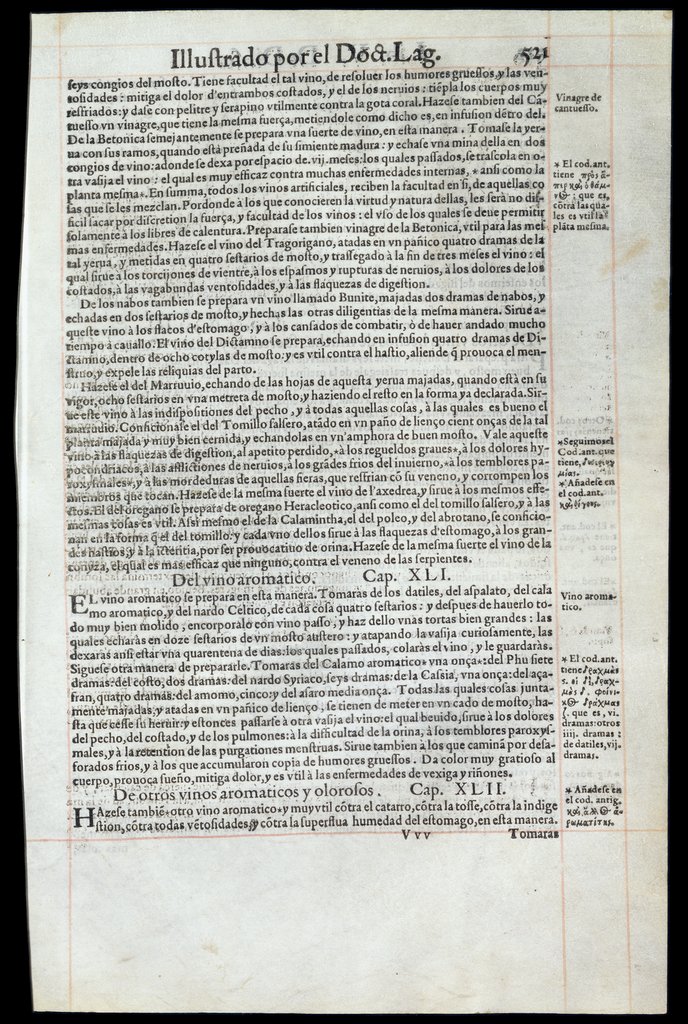 Illustrado por el Doct. Lag. 521
seys congios del mosto. Tiene facultad el tal vino, de resoluer los humores gruessos, y las ven-
tosidades: mitiga el dolor d'entrambos costados, y el de los neruios: tiẽpla los cuerpos muy
resfriados: y dase con pelitre y serapino vtilmente contra la gota coral. Hazese tambien del Cã-
tuesso vn vinagre, que tiene la mesma fuerça, metiendole como dicho es, en infusion dẽtro del.
De la Betonica semejantemente se prepara vna suerte de vino, en esta manera. Tomase la yer-
ua con sus ramos, quando está preñada de su simiente madura: y echase vna mina della en dos
congios de vino: adonde se dexa por espacio de .vij. meses: los quales passados, se trascola en o-
tra vasija el vino: el qual es muy efficaz contra muchas enfermedades internas, * ansi como la
planta mesma*. En summa, todos los vinos artificiales, reciben la facultad en sí, de aquellas co
sas que se les mezclan. Por donde à los que conocieren la virtud y natura dellas, les será no dif-
ficil sacar por discretion la fuerça, y facultad de los vinos: el vso de los quales se deue permitir
solamente à los libres de calentura. Preparase tambien vinagre de la Betonica, vtil para las mes
mas enfermedades. Hazese el vino del Tragorigano, atadas en vn pañico quatro dramas de la
tal yerua, y metidas en quatro sestarios de mosto, y trassegado à la fin de tres meses el vino: el
qual sirue à los torcijones de vientre, à los espasmos y rupturas de neruios, à los dolores de los
costados, à las vagabundas ventosidades, y à las flaquezas de digestion.
De los nabos tambien se prepara vn vino llamado Bunite, majadas dos dramas de nabos, y
echadas en dos sestarios de mosto, y hechas las otras diligentias de la mesma manera. Sirue a-
queste vino à los flatos d'estomago, y à los cansados de combatir, ò de hauer andado mucho
tiempo à cauallo. El vino del Dictamno se prepara, echando en infusion quatro dramas de Di-
ctamno, dentro de ocho cotylas de mosto: y es vtil contra el hastio, aliende q̃ prouoca el men-
struo, y expele las reliquias del parto.
Hazese el del Marruuio, echando de las hojas de aquesta yerua majadas, quando está en su
vigor, ocho sestarios en vna metreta de mosto, y haziendo el resto en la forma ya declarada. Sir-
ue este vino à las indispositiones del pecho, y à todas aquellas cosas, à las quales es bueno el
marrudio. Conficionase el del Tomillo salsero, atãdo en vn paño de lienço cient onças de la tal
planta majada y muy bien cernida, y echandolas en vn'amphora de buen mosto. Vale aqueste
vino à las flaquezas de digestion, al apetito perdido, *à los regueldos graues*, à los dolores hy-
pocondriacos, à las afflictiones de neruios, à los grãdes frios del inuierno, *à los temblores pa-
roxysmales*, y à las mordeduras de aquellas fieras, que resfrian cõ su veneno, y corrompen los
miembros que tocan. Hazese de la mesma suerte el vino de l'axedrea, y sirue à los mesmos effe-
ctos. El del oregano se prepara de oregano Heracleotico, ansi como el del tomillo salsero, y à las
mesmas cosas es vtil. Assi mesmo el de la Calamintha, el del poleo, y del abrotano, se conficio-
nan en la forma q̃ el del tomillo: y cada vno dellos sirue à las flaquezas d'estomago, à los gran-
des hastios, y à la icteritia, por ser prouocatiuo de orina. Hazese de la mesma suerte el vino de la
conyza, el qual es mas efficaz que ninguno, contra el veneno de las serpientes.
Del vino aromatico. Cap. XLI.
EL vino aromatico se prepara en esta manera. Tomaras de los datiles, del aspalato, del cala
mo aromatico, y del nardo Céltico, de cada cosa quatro sestarios: y despues de hauerlo to-
do muy bien molido, encorporalo con vino passo, y haz dello vnas tortas bien grandes: las
quales echarás en doze sestarios de vn mosto austero: y atapando la vasija curiosamente, las
dexaras ansi estar vna quarentena de dias: los quales passados, colarás el vino, y le guardarás.
Siguese otra manera de prepararle. Tomaras del Calamo aromatico* vna onça*: del Phu siete
dramas: del costo, dos dramas: del nardo Syriaco, seys dramas: de la Cassia, vna onça: del aça-
fran, quatro dramas: del amomo, cinco: y del asaro media onça. Todas las quales cosas junta-
mente majadas, y atadas en vn pañico de lienço, se tienen de meter en vn cado de mosto, ha-
sta que cesse su heruir: y estonces passarse à otra vasija el vino: el qual beuido, sirue à los dolores
del pecho, del costado, y de los pulmones: à la difficultad de la orina, à los temblores paroxys-
males, y à la retention de las purgationes menstruas. Sirue tambien à los que caminã por desa-
forados frios, y à los que accumularon copia de humores gruessos. Da color muy gratioso al
cuerpo, prouoca sueño, mitiga dolor, y es vtil à las enfermedades de vexiga y riñones.
De otros vinos aromaticos y olorosos. Cap. XLII.
HAzese tambiẽ* otro vino aromatico* y muy vtil cõtra el catarro, cõtra la tosse, cõtra la indige
stion, cõtra todas vẽtosidades, y cõtra la superflua humedad del estomago, en esta manera.
Vvv Tomaras
Vinagre de
cantuesso.
* El cod. ant.
tiene
que es,
cõtra las qua-
les es vtil la
plãta mesma.
*Seguimos el
Cod. ant. que
tiene,
*Añadese en
el cod. ant.
Vino aroma-
tico.
* El cod. ant.
tiene
que es, vi.
dramas: otros
iiij. dramas:
de datiles, vij.
dramas.
* Añadese en
el cod. antig.